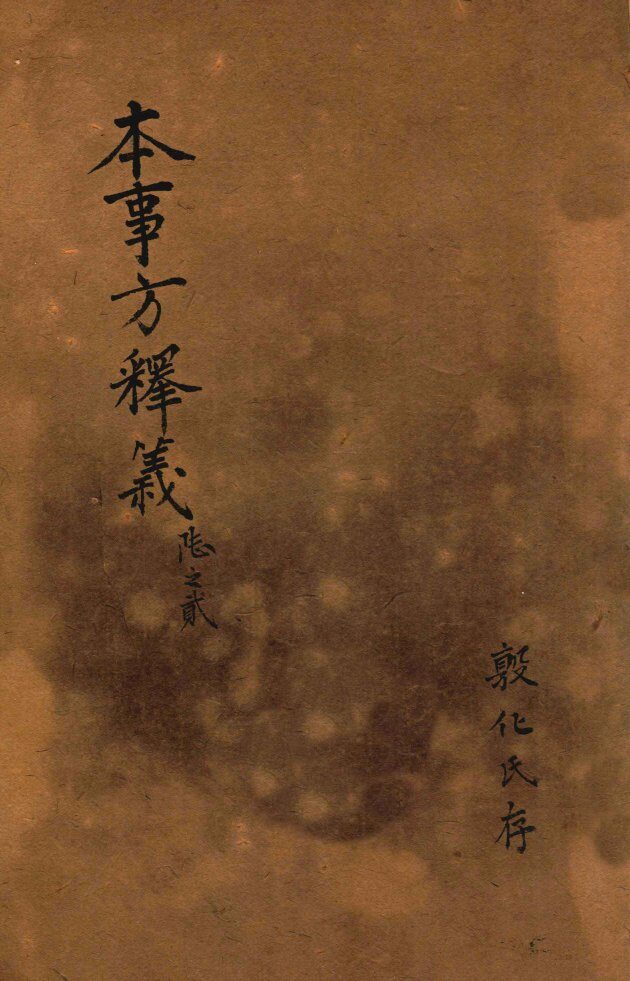 本事方釋義
陸之貳
敦化氏存